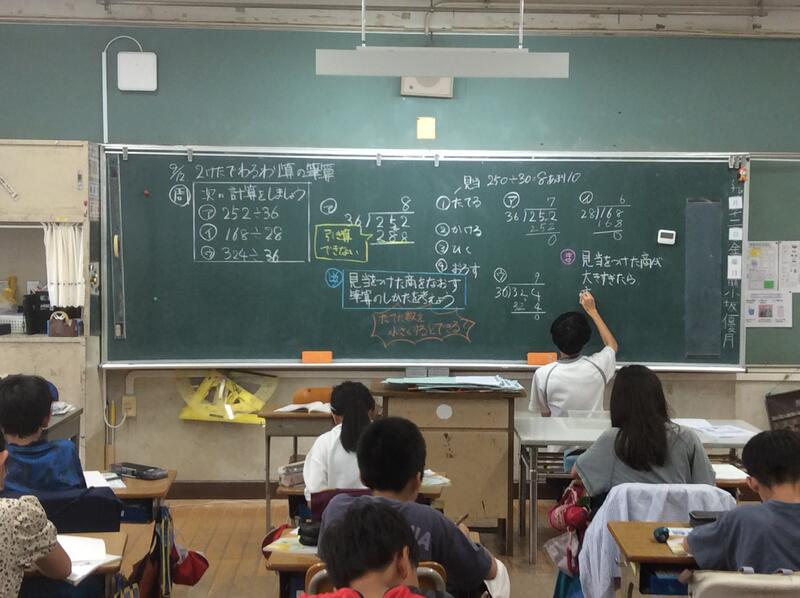 9/12 2けたでわるわり算の筆算
問
次の計算をしましょう
ア 252÷36
イ 168÷28
ウ 324÷36
ア
8
36 252
288
引き算
できない
め
見当をつけた商をなおす
筆算のしかたを考えよう
たてた数を
小さくするとできる?
見当 250÷30=8あまり10
① たてる
② かける
③ ひく
④ おろす
ア
7
36 252
252
0
イ
6
28 168
168
0
ウ
9
36 324
324
0
見当をつけた商が
大きすぎたら
九月十二日金曜日
小坂優月